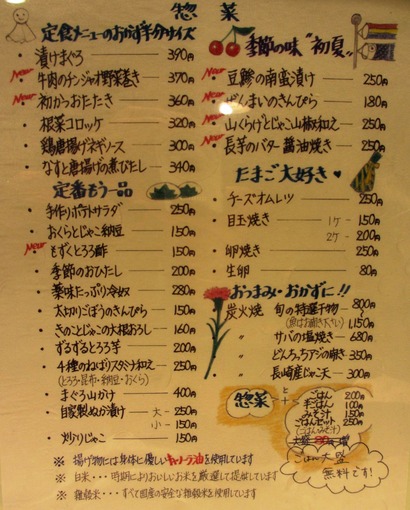 惣菜
定食メニューのおかず半分サイズ
・漬けまぐろ 390円
New 牛肉のチンジャオ野菜巻き 370円
New 初かつおたたき 360円
・根菜コロッケ 320円
・鶏唐揚げネギソース 300円
・なすと唐揚げの煮びたし 340円
定番もう一品
・手作りポテトサラダ 250円
・おくらとじゃこ納豆 150円
New もずくとろろ酢 150円
・季節のおひたし 200円
・薬味たっぷり冷奴 280円
・太切りごぼうのきんぴら 150円
・きのことじゃこの大根おろし 160円
・ずるずるとろろ芋 200円
・4種のねばりスタミナ和え 250円
(とろろ・昆布・納豆・おくら)
・まぐろ山かけ 400円
・自家製ぬか漬け 大 250円
小 150円
・刈りじゃこ 150円
※ 揚げ物には身体に優しいキャノーラ油を使用しています
※ 白米・・・時期によりおいしいお米を厳選して提供しています
※ 雑穀米・・・すべて国産の安全な雑穀米を使用しています
季節の味 "初夏"
New 豆鯵の南蛮漬け 250円
New ぜんまいのきんぴら 180円
New 山くらげとじゃこ山椒和え 250円
New 長芋のバター醤油焼き 250円
たまご大好き♥
・チーズオムレツ 250円
・目玉焼き 1ケ 150円
2ケ 200円
・卵焼き 250円
・生卵 80円
おつまみ・おかずに!!
炭火焼 旬の特選干物 800円〜
(魚はお聞き下さい) 1,150円
〃 サバの塩焼き 680円
〃 どんちっちアジの開き 350円
〃 長崎産じゃこ天 300円
惣菜 +
ごはん 200円
半ごはん 100円
みそ汁 150円
ごはんセット 250円
(ごはん・みそ汁)
ごはん大盛
無料です!